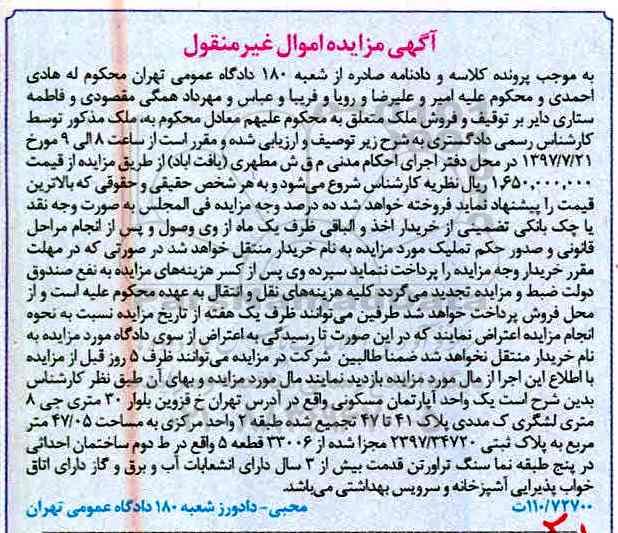 آگهی مزایده اموال غیرمنقول
به موجب پرونده کلاسه و دادنامه صادره از شعبه ۱۸۰ دادگاه عمومی تهران محکوم له هادی
احمدی و محکوم علیه امیر و علیرضا و رویا و فریبا و عباس و مهرداد همگی مقصودی و فاطمه
ستاری دایر بر توقیف و فروش ملک متعلق به محکوم علیهم معادل محکوم به، ملک مذکور توسط
کارشناس رسمی دادگستری به شرح زیر توصیف و ارزیابی شده و مقرر است از ساعت ۸ الی ۹ مورخ
۱۳۹۷/۷/۲۱ در محل دفتر اجرای احکام مدنی م ق ش مطهری (یافت اباد) از طریق مزایده از قیمت
۱،۶۵۰،۰۰۰،۰۰۰ ریال نظریه کارشناس شروع می‌شود و به هر شخص حقیقی و حقوقی که بالاترین
قیمت را پیشنهاد نماید فروخته خواهد شد ده درصد وجه مزایده فی المجلس به صورت وجه نقد
یا چک بانکی تضمینی از خریدار اخذ و الباقی ظرف یک ماه از وی وصول و پس از انجام مراحل
قانونی و صدور حکم تملیک مورد مزایده به نام خریدار منتقل خواهد شد در صورتی که در مهلت
مقرر خریدار وجه مزایده را پرداخت ننماید سپرده وی پس از کسر هزینه‌های مزایده به نفع صندوق
دولت ضبط و مزایده تجدید می‌گردد کلیه هزینه‌های نقل و انتقال به عهده محکوم علیه است و از
محل فروش پرداخت خواهد شد طرفین می‌توانند ظرف یک هفته از تاریخ مزایده نسبت به نحوه
انجام مزایده اعتراض نمایند که در این صورت تا رسیدگی به اعتراض از سوی دادگاه مورد مزایده به
نام خریدار منتقل نخواهد شد ضمنا طالبین شرکت در مزایده می‌توانند ظرف ۵ روز قبل از مزایده
با اطلاع این اجرا از مال مورد مزایده بازدید نمایند مال مورد مزایده و بهای آن طبق نظر کارشناس
بدین شرح است یک واحد آپارتمان مسکونی واقع در آدرس تهران خ قزوین بلوار ۳۰ متری جی ۸
متری لشگری ک مددی پلاک ۴۱ تا ۴۷ تجمیع شده طبقه ۲ واحد مرکزی به مساحت ۴۷/۰۵ متر
مربع به پلاک ثبتی ۲۳۹۷/۳۴۷۲۰ مجزا شده از ۳۳۰۰۶ قطعه ۵ واقع در ط دوم ساختمان احداثی
در پنج طبقه نما سنگ تراورتن قدمت بیش از ۳ سال دارای انشعابات آب و برق و گاز دارای اتاق
خواب پذیرایی آشپزخانه و سرویس بهداشتی می‌باشد.
۱۱۰/۷۲۷۰۰ت محبی- دادورز شعبه ۱۸۰ دادگاه عمومی تهران